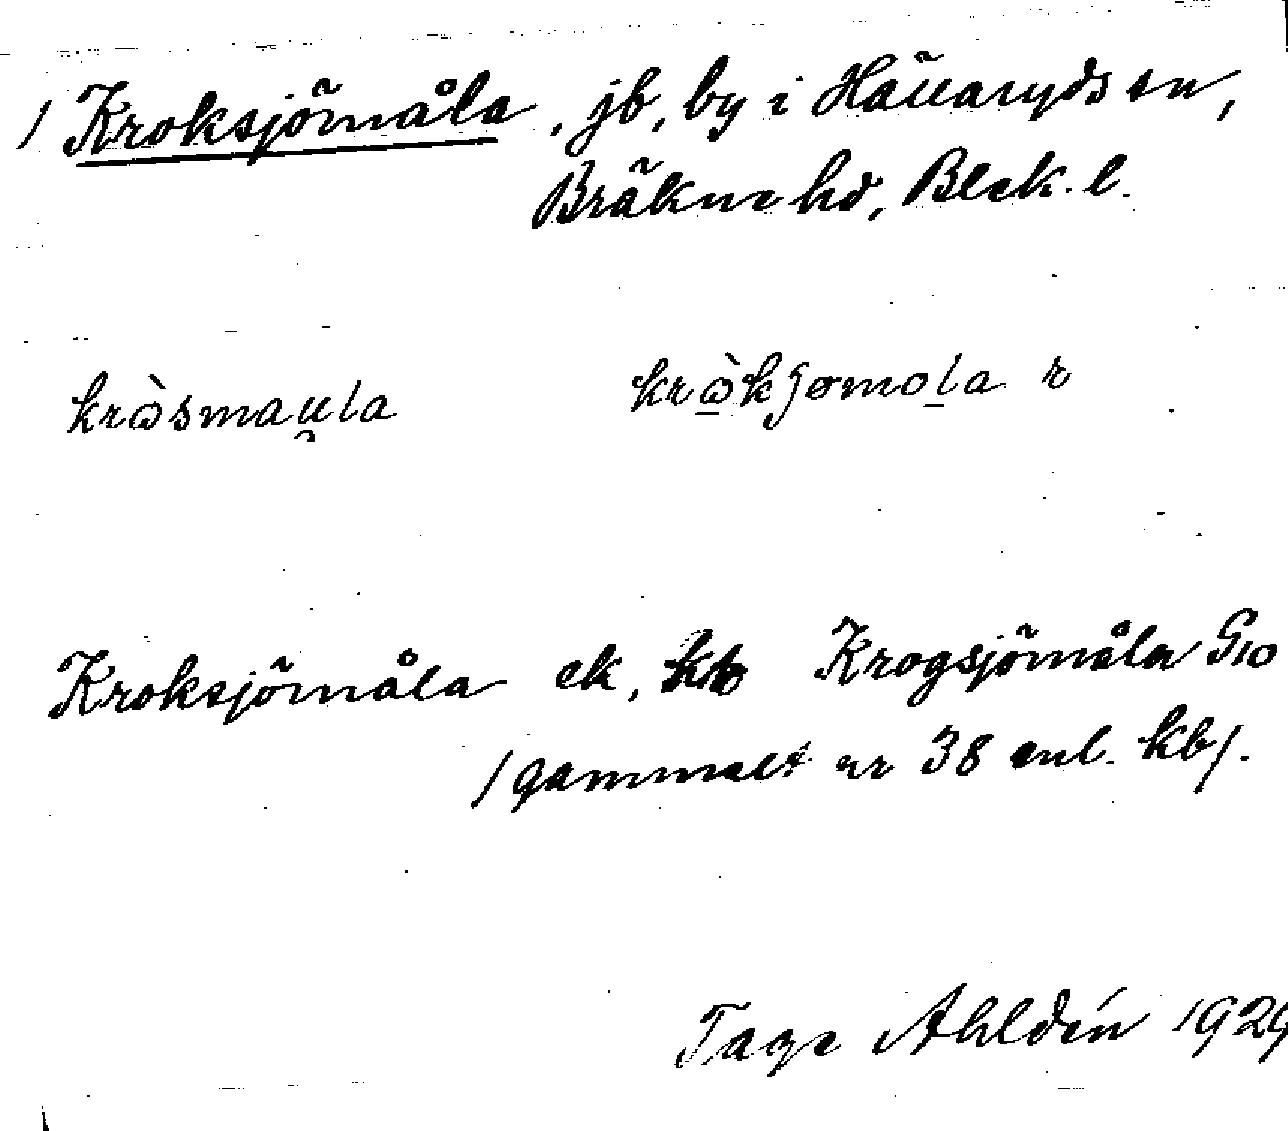 / Kroksjömåla, jb, by i Hällaryds sn,
Bräkne hd, Blek. l.
kròsmau̯la krò̱kʃømoḻa r
Kroksjömåla ek, kb Krogsjömåla G10
/gammalt nr 38 enl. kb/.
Tage Ahldén 1929